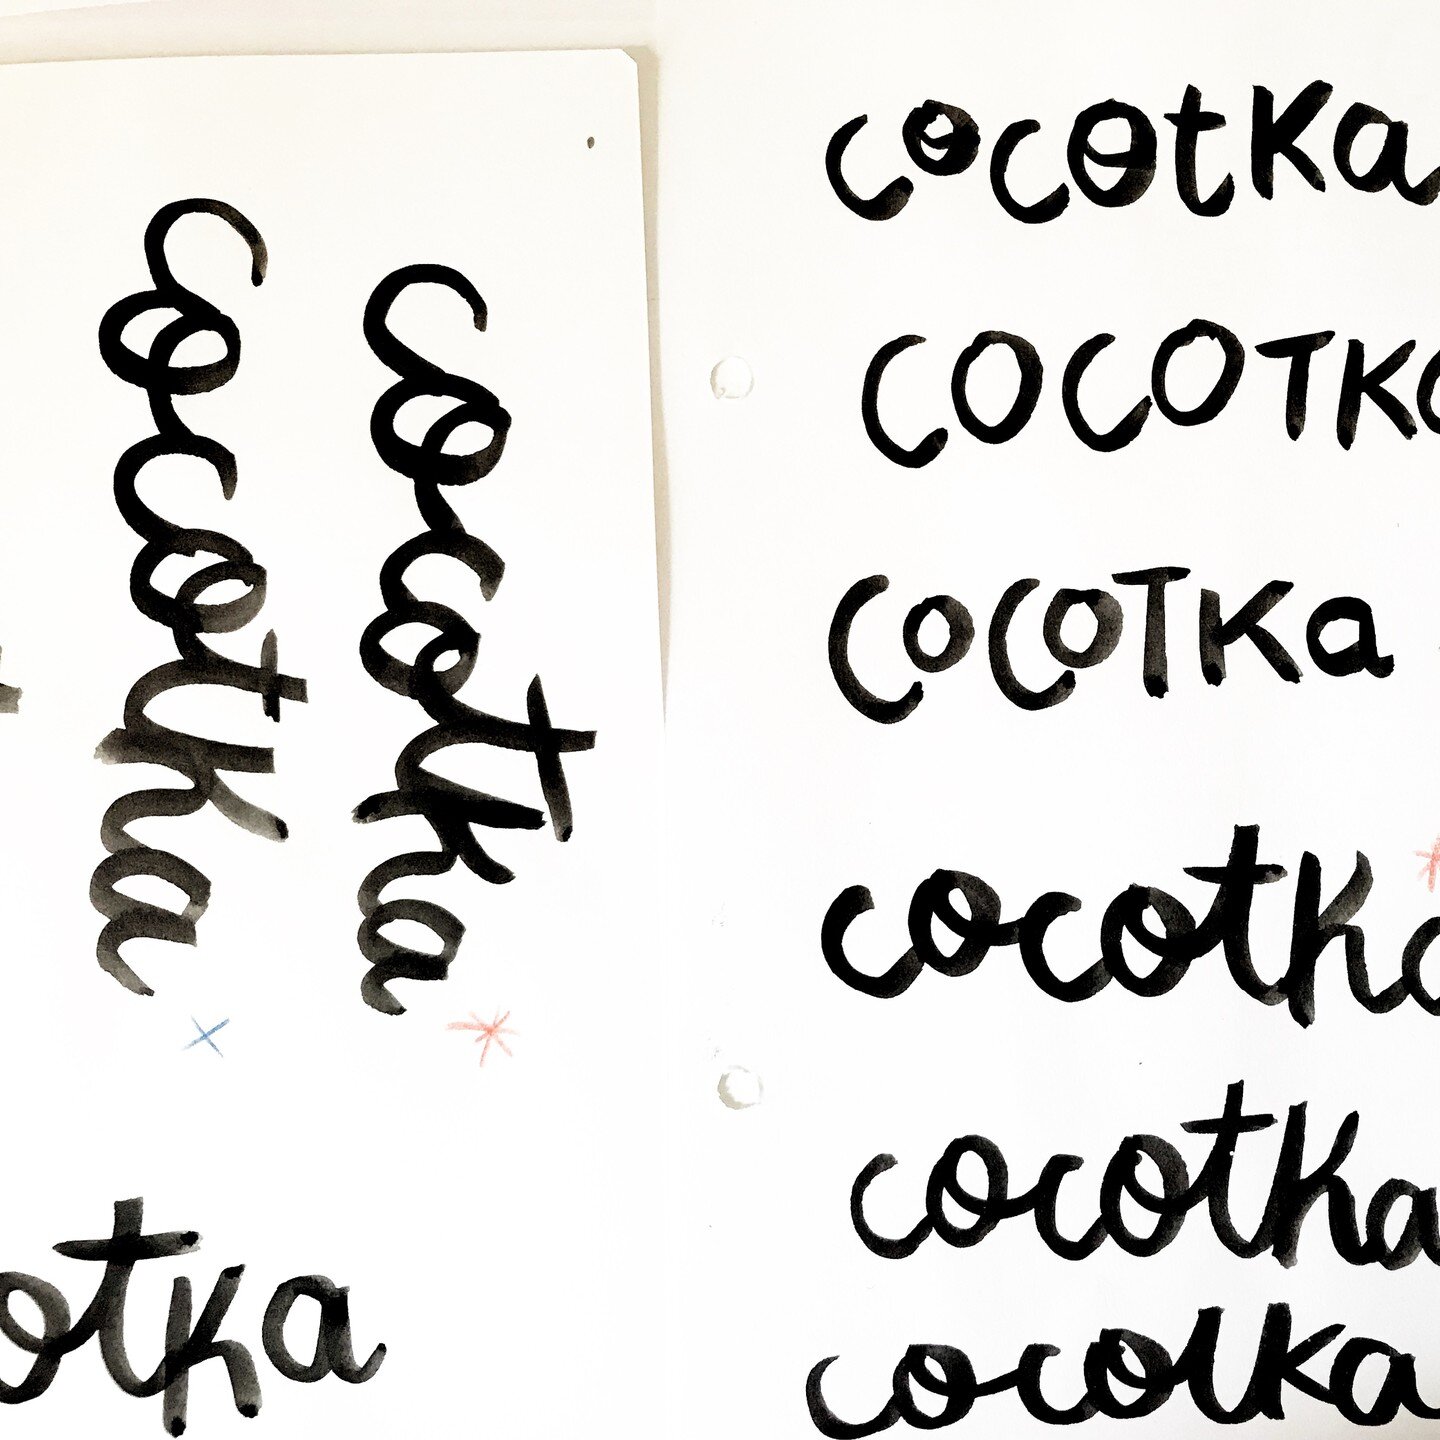 cocotka
cocotka
otka
cocotka
COCOTKa
COCOTKa
cocotka
cocotka
cocotka